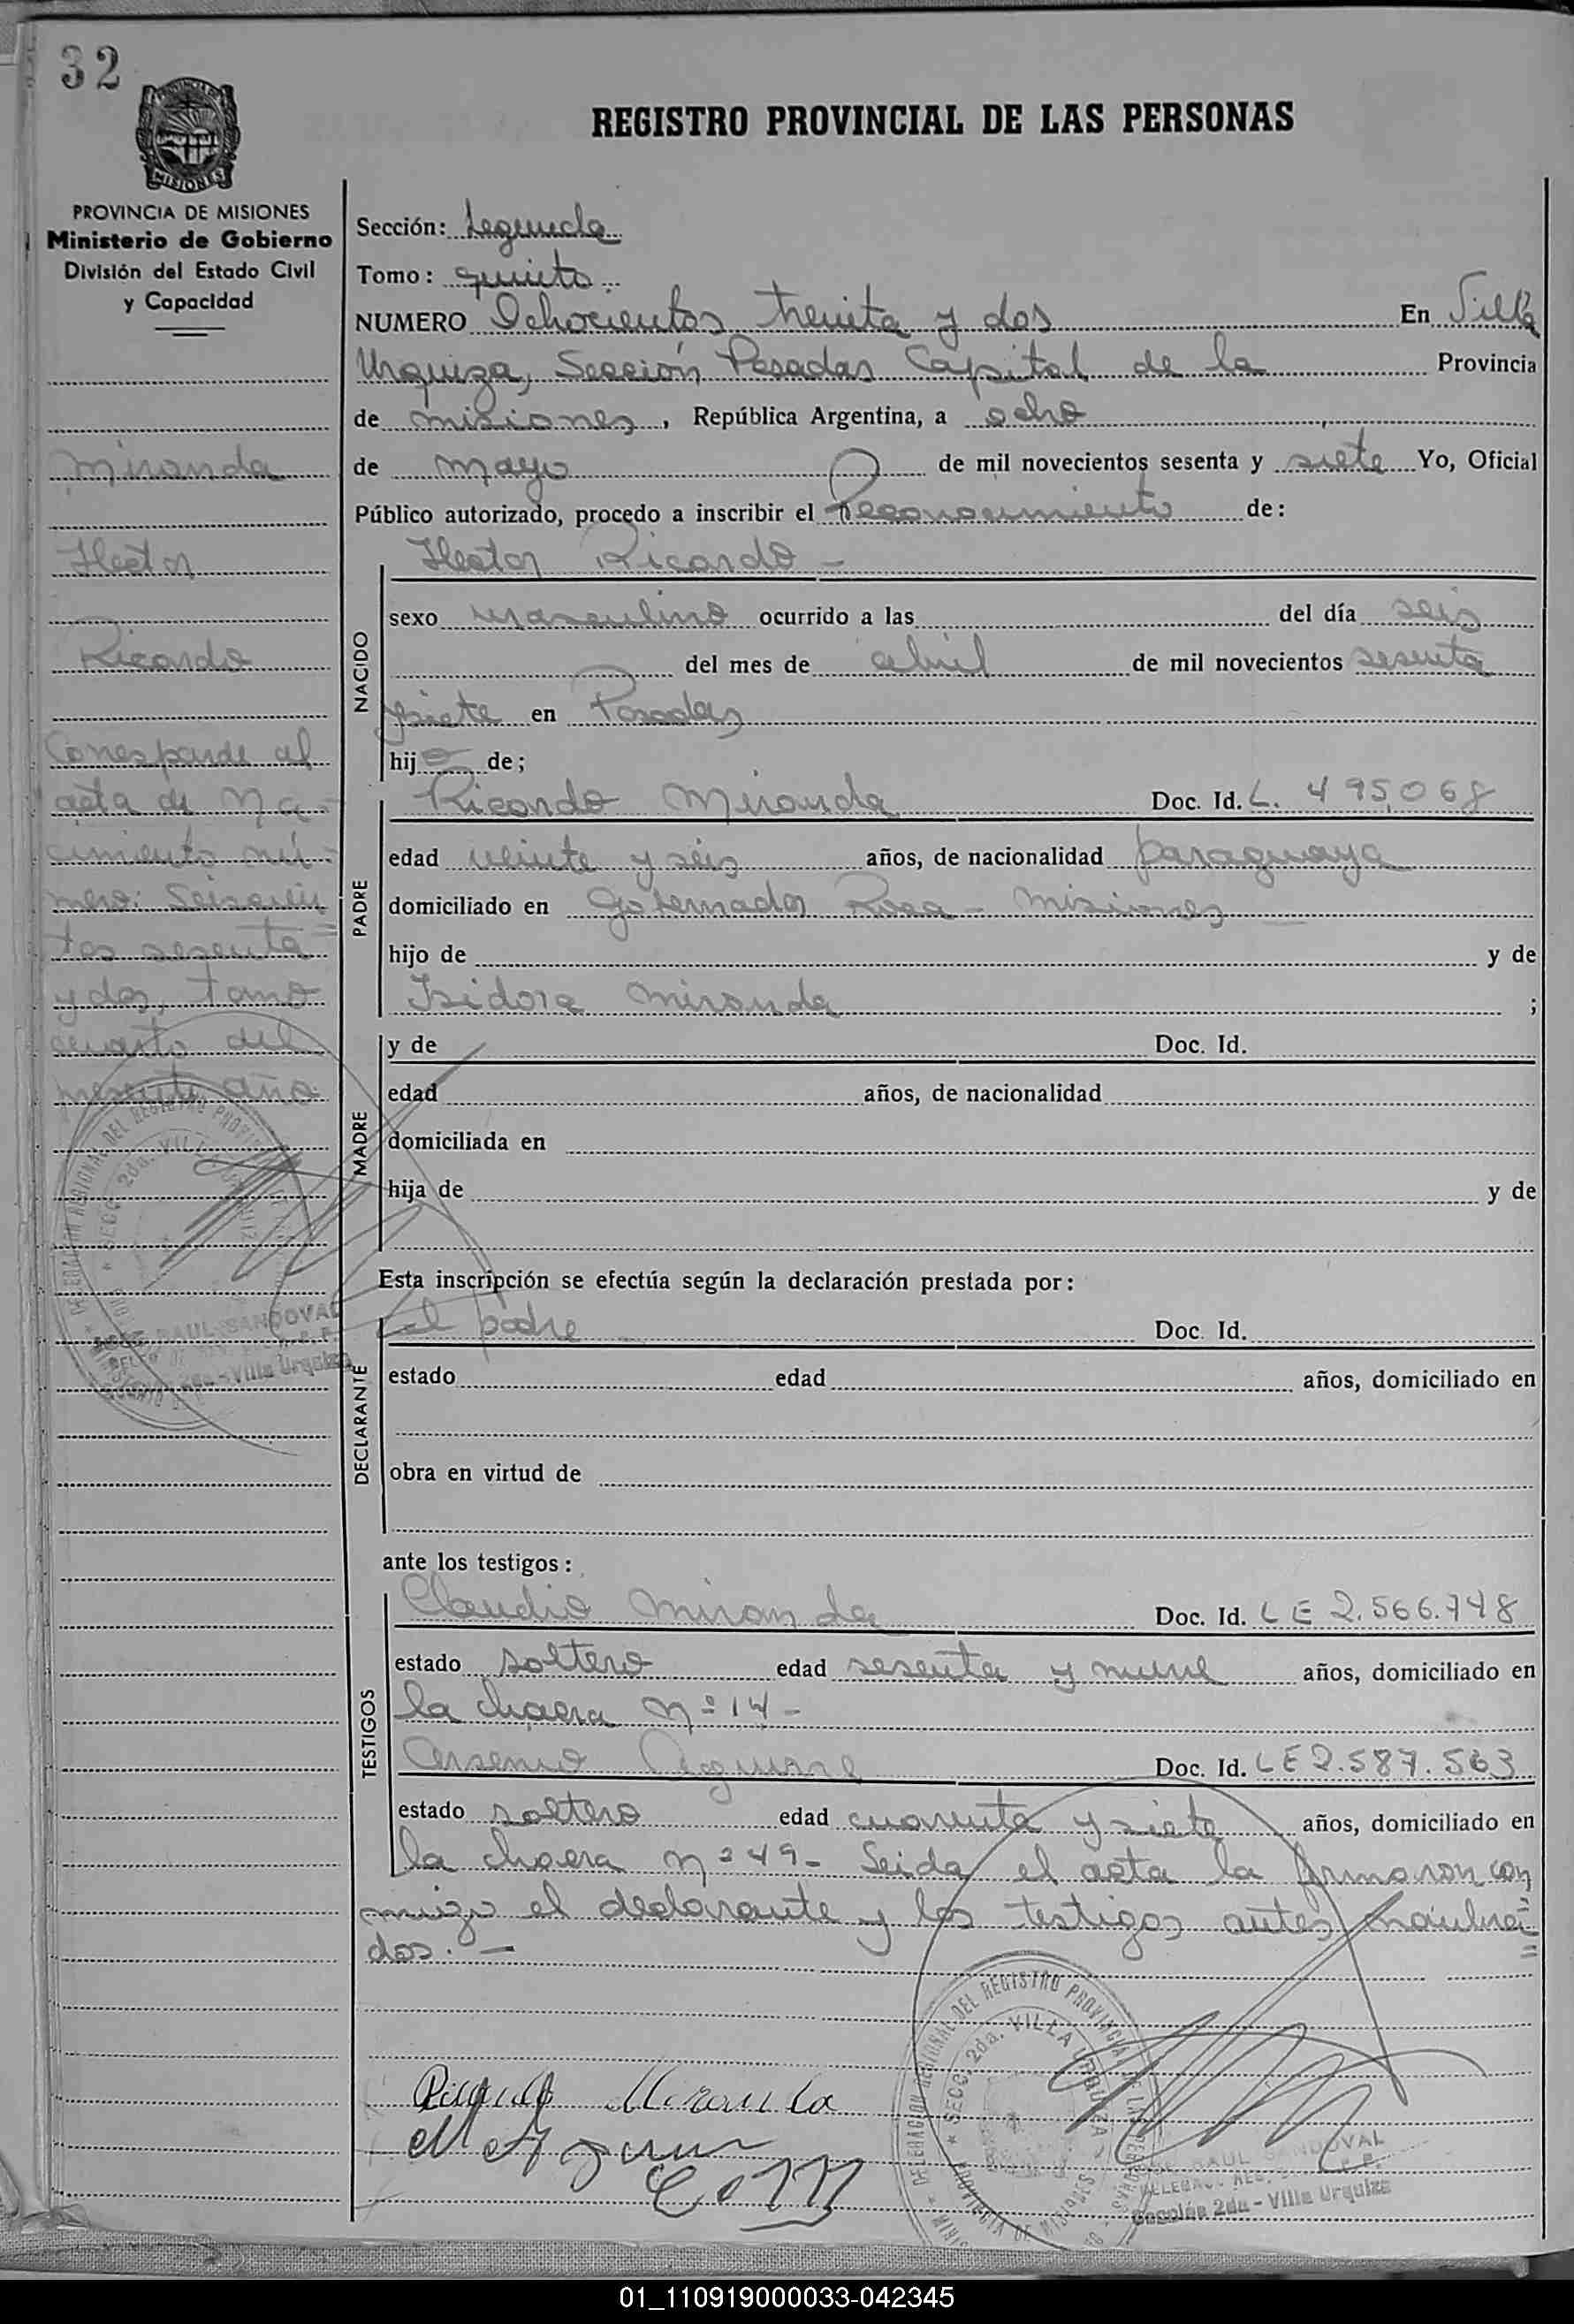 32
REGISTRO PROVINCIAL DE LAS PERSONAS
MISIONES
PROVINCIA DE MISIONES
Ministerio de Gobierno
División del Estado Civil
y Capacidad
Miranda
Hector
Ricardo
Corresponde al
acta de Na-
cimiento nú-
mero: Seiscien
tos sesenta
y dos, tomo
cuarto del
presente año
Sección: Segunda
Tomo: quinto
NUMERO Ochocientos treinta y dos En Villa
Urquiza, Sección Posadas Capital de la Provincia
de misiones, República Argentina, a ocho
de mayo de mil novecientos sesenta y siete Yo, Oficial
Público autorizado, procedo a inscribir el Reconocimiento de:
NACIDO
Hector Ricardo -
sexo masculino ocurrido a las del día seis
del mes de abril de mil novecientos sesenta
y siete en Posadas
hijo de;
PADRE
Ricardo Miranda Doc. Id. L. 495,068
edad veinte y séis años, de nacionalidad paraguaya
domiciliado en Gobernador Roca - misiones
hijo de y de
Isidora Miranda ;
MADRE
y de Doc. Id.
edad años, de nacionalidad
domiciliada en
hija de y de
Esta inscripción se efectúa según la declaración prestada por:
DECLARANTE
el padre Doc. Id.
estado edad años, domiciliado en
obra en virtud de
ante los testigos:
TESTIGOS
Claudio Miranda Doc. Id. LE 2.566.748
estado soltero edad sesenta y nueve años, domiciliado en
la chacra Nº 14-
Arsenio Aguirre Doc. Id. LE 2.587.563
estado soltero edad cuarenta y siete años, domiciliado en
la chacra nº 49- Leida el acta la firmaron con
migo el declarante y los testigos antes nombra=
dos.-
Ricardo Miranda
SECC. 2da. VILLA URQUIZA
RAUL SANDOVAL
Sección 2da - Villa Urquiza
01_110919000033-042345